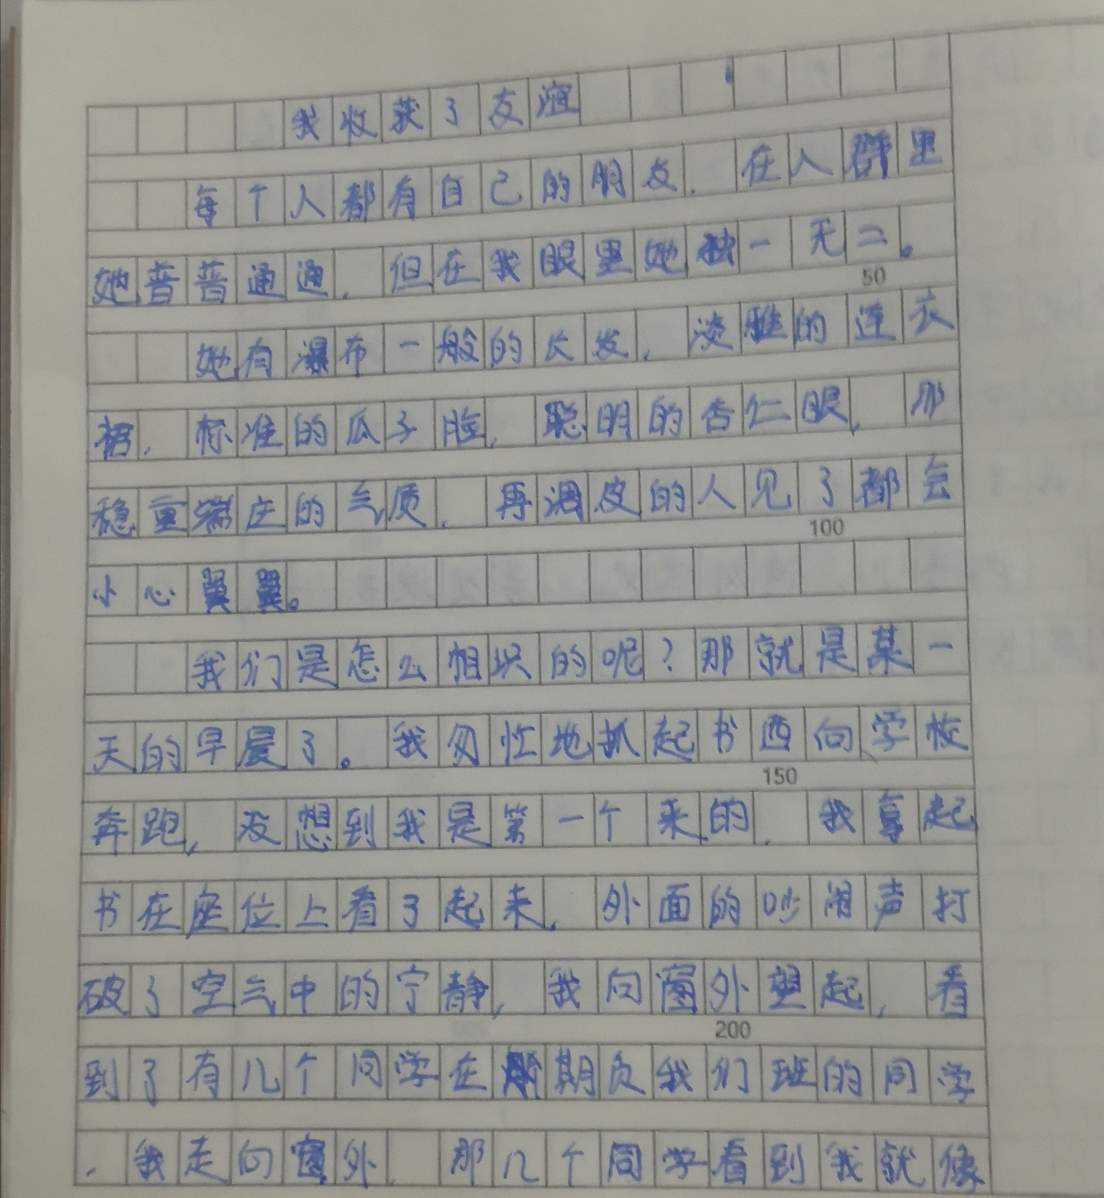 我收获了友谊
每个人都有自己的朋友，在人群里
她普普通通，但在我眼里她独一无二。
50
她有瀑布一般的长发，淡雅的连衣
裙，标准的瓜子脸，聪明的杏仁眼，那
稳重端庄的气质，再调皮的人见了都会
100
小心翼翼。
我们是怎么相识的呢？那就是某一
天的早晨了。我匆忙地抓起书包向学校
150
奔跑，没想到我是第一个来的，我拿起
书在座位上看了起来，外面的吵闹声打
破了空气中的宁静，我向窗外望起，看
200
到了有几个同学在期负我们班的同学
，我走向窗外，那几个同学看到我就像